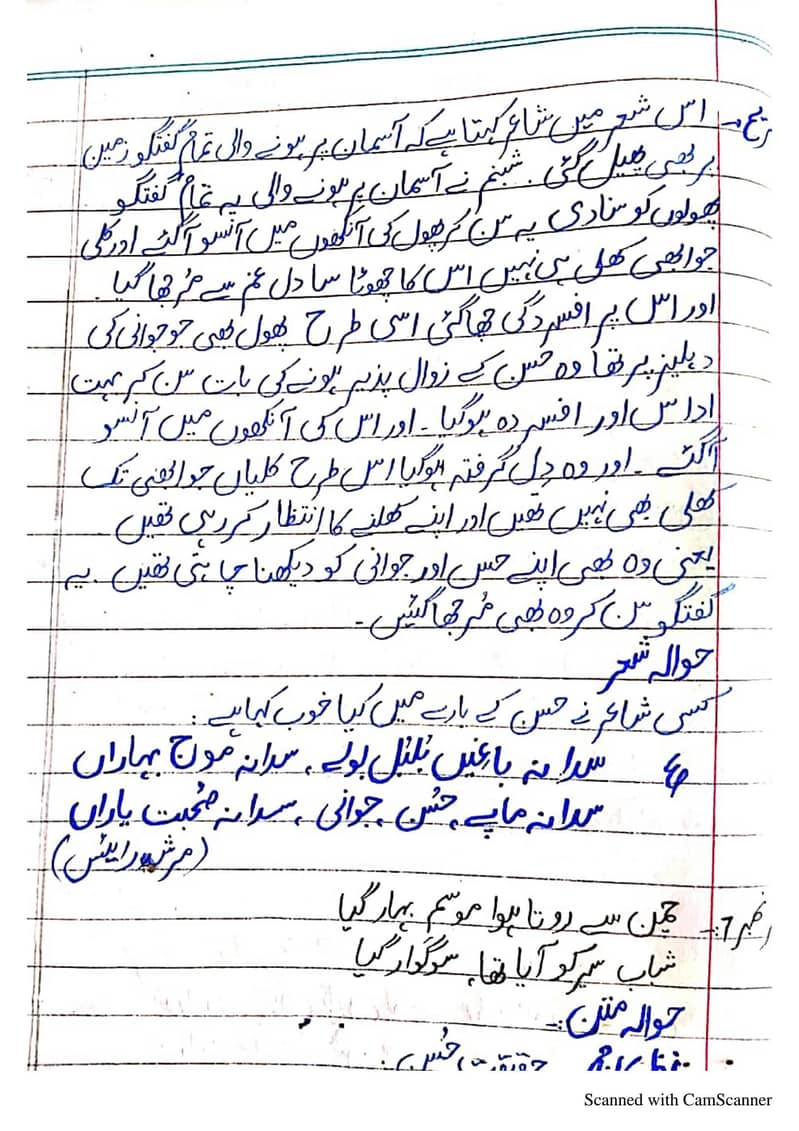 ریح:- اس شعر میں شاعر کہتا ہے کہ آسمان پر ہونے والی تمام گفتگو زمین
پر بھی پھیل گئی۔ شبنم نے آسمان پر ہونے والی یہ تمام گفتگو
پھولوں کو سنا دی یہ سن کر پھول کی آنکھوں میں آنسو آگئے اور کلی
جو ابھی کھلی ہی نہیں اس کا چھوٹا سا دل غم سے مُرجھا گیا۔
اور اس پر افسردگی چھا گئی اسی طرح پھول بھی جو جوانی کی
دہلیز پر تھا وہ حسن کے زوال پذیر ہونے کی بات سن کر بہت
اداس اور افسردہ ہوگیا۔ اور اس کی آنکھوں میں آنسو
آگئے۔ اور وہ دل گرفتہ ہوگیا اس طرح کلیاں جو ابھی تک
کھلی بھی نہیں تھیں اور اپنے کھلنے کا انتظار کر رہی تھیں
یعنی وہ بھی اپنے حسن اور جوانی کو دیکھنا چاہتی تھیں۔ یہ
گفتگو سن کر وہ بھی مُرجھا گئیں۔
حوالہ شعر
کسی شاعر نے حسن کے بارے میں کیا خوب کہا ہے:
سدا نہ باغیں بُلبُل بولے، سدا نہ موج بہاراں
سدا نہ ماپے، حُسن، جوانی، سدا نہ صُحبت یاراں
شعر نمبر 7:- چمن سے روتا ہوا موسم بہار گیا
شباب سیر کو آیا تھا، سوگوار گیا
حوالہ متن:-
حقیقت حُسن
Scanned with CamScanner